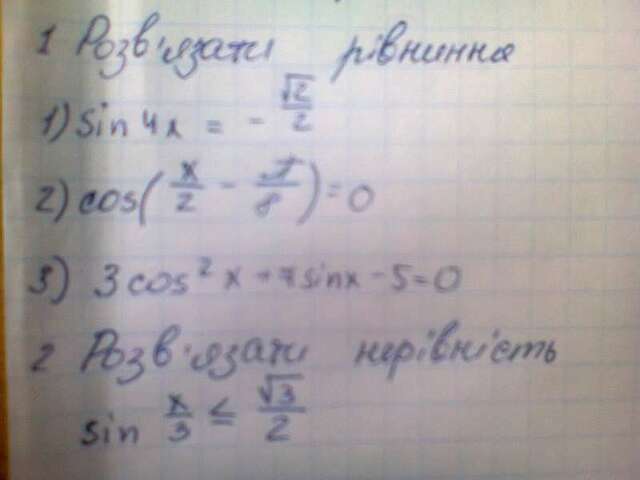 1 Розв'язати рівниння
1) sin 4x = - √2/2
2) cos(x/2 - π/8) = 0
3) 3cos²x + 7sinx - 5 = 0
2 Розв'язати нерівність
sin x/3 ≤ √3/2